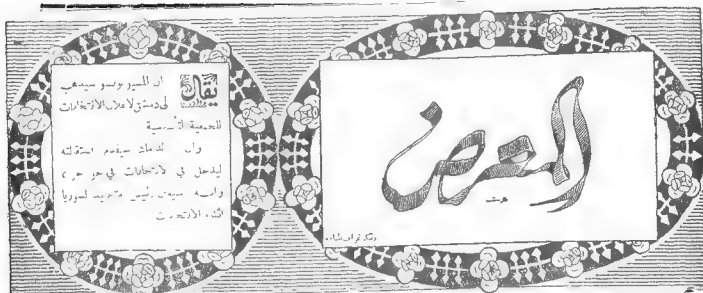 المعرض
يقال
ان المسيو بونسو سيذهب
الى دمشق لاعلان الانتخابات
للجمعية التأسيسية
وان الداماد سيقدم استقالته
ليدخل في الانتخابات في جو حر
وانه سيعين رئيس جديد لسوريا
اثناء الانتخابات